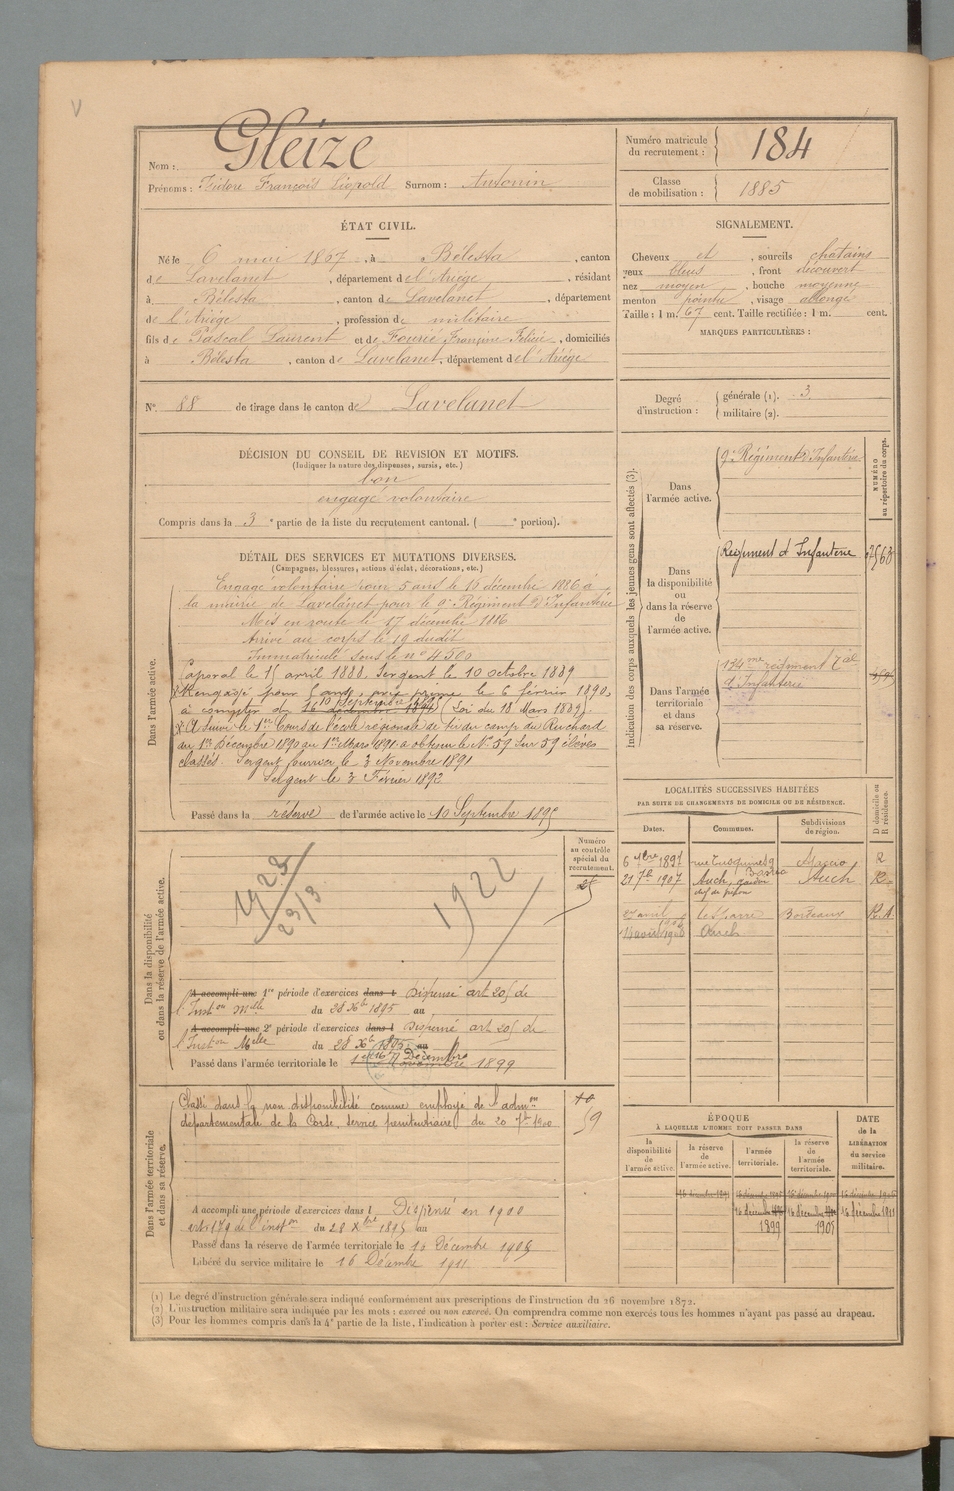 Nom : Gleize
Prénoms : Isidore François Léopold Surnom : Antonin
Numéro matricule du recrutement : 184
Classe de mobilisation : 1885
ÉTAT CIVIL.
Né le 6 mai 1867, à Bélesta, canton
de Lavelanet, département de l'Ariège, résidant
à Bélesta, canton de Lavelanet, département
de l'Ariège, profession de militaire
fils de Pascal Laurent et de Fourié Françoise Félicie, domiciliés
à Bélesta, canton de Lavelanet, département de l'Ariège
N° 88 de tirage dans le canton de Lavelanet
SIGNALEMENT.
Cheveux et, sourcils chatains
yeux bleus, front découvert
nez moyen, bouche moyenne
menton pointu, visage allongé
Taille : 1 m. 67 cent. Taille rectifiée : 1 m. cent.
MARQUES PARTICULIÈRES :
Degré d'instruction : générale (1). 3
militaire (2).
DÉCISION DU CONSEIL DE REVISION ET MOTIFS.
(Indiquer la nature des dispenses, sursis, etc.)
bon
engagé volontaire
Compris dans la 3e partie de la liste du recrutement cantonal. ( e portion).
DÉTAIL DES SERVICES ET MUTATIONS DIVERSES.
(Campagnes, blessures, actions d'éclat, décorations, etc.)
Dans l'armée active.
Engagé volontaire pour 5 ans le 16 décembre 1886 à
la mairie de Lavelanet pour le 9e Régiment d'Infanterie
Mis en route le 17 décembre 1886
Arrivé au corps le 19 dudit
Immatriculé sous le n° 4500
Caporal le 15 avril 1888. Sergent le 10 octobre 1889
Rengagé pour 5 ans, avec prime le 6 février 1890,
10 septembre 1890
à compter du 16 décembre 1891 (Loi du 18 Mars 1889).
A suivi le 1er Cours de l'école régionale de tir du camp du Ruchard
du 1er Décembre 1890 au 1er Mars 1891 a obtenu le N° 59 sur 59 élèves
classés. Sergent fourrier le 3 Novembre 1891
Sergent le 3 Février 1892
Passé dans la réserve de l'armée active le 10 Septembre 1895
Indication des corps auxquels les jeunes gens sont affectés (3).
NUMÉRO au répertoire du corps.
Dans l'armée active.
9e Régiment d'Infanterie
Dans la disponibilité ou dans la réserve de l'armée active.
Régiment d'Infanterie
Dans l'armée territoriale et dans sa réserve.
134me régiment Tal
d'Infanterie
LOCALITÉS SUCCESSIVES HABITÉES
PAR SUITE DE CHANGEMENTS DE DOMICILE OU DE RÉSIDENCE.
Dates. Communes. Subdivisions de région. D domicile ou R résidence.
6 7bre 1897 Bastia Ajaccio R
21 7b 1907 Auch, gardien Auch R
chef de prison
27 avril Lesparre Bordeaux R
Auch
Dans la disponibilité ou dans la réserve de l'armée active.
Numéro au contrôle spécial du recrutement.
25
1923
23/3
1922
A accompli une 1re période d'exercices dans l Dispensé art. 205 de
l'Inston Mlle du 28 Xbre 1895 au
A accompli une 2e période d'exercices dans l Dispensé art 205 de
l'Inston Mlle du 28 Xbre 1895 au
Passé dans l'armée territoriale le 16 Décembre 1899
Dans l'armée territoriale et dans sa réserve.
Classé dans la non disponibilité comme employé de l'admon
départementale de la Corse, service pénitentiaire, du 20 7bre 1900
59
A accompli une période d'exercices dans l Dispensé en 1900
art. 179 de l'inston du 28 Xbre 1895 au
Passé dans la réserve de l'armée territoriale le 16 Décembre 1905
Libéré du service militaire le 16 Décembre 1911
ÉPOQUE
À LAQUELLE L'HOMME DOIT PASSER DANS
la disponibilité de l'armée active.
la réserve de l'armée active.
l'armée territoriale.
la réserve de l'armée territoriale.
DATE de la LIBÉRATION du service militaire.
16 décembre 1891
16 décembre 16 décembre 16 décembre 1911
1899 1905
(1) Le degré d'instruction générale sera indiqué conformément aux prescriptions de l'instruction du 26 novembre 1872.
(2) L'instruction militaire sera indiquée par les mots : exercé ou non exercé. On comprendra comme non exercés tous les hommes n'ayant pas passé au drapeau.
(3) Pour les hommes compris dans la 4e partie de la liste, l'indication à porter est : Service auxiliaire.